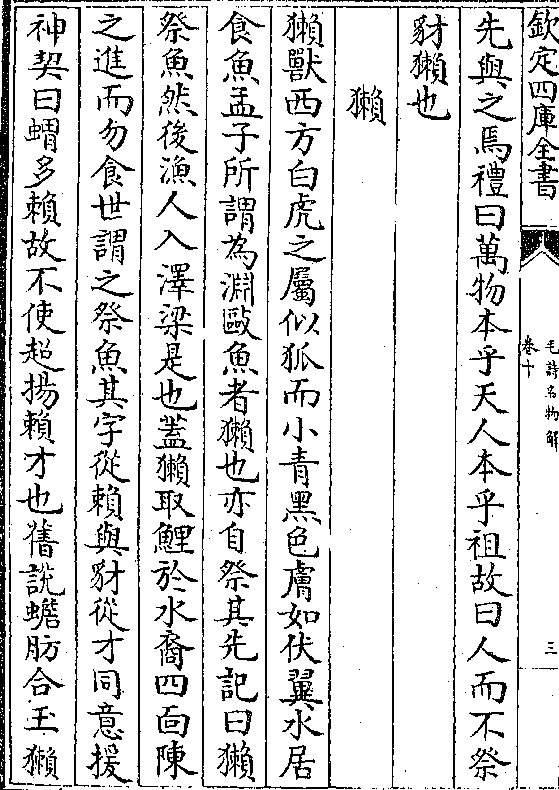 欽定四庫全書
毛詩名物解
卷十
三
先與之焉禮曰萬物本乎天人本乎祖故曰人而不祭
豺獺也
獺
獺獸西方白虎之屬似狐而小青黑色膚如伏翼水居
食魚孟子所謂為淵敺魚者獺也亦自祭其先記曰獺
祭魚然後漁人入澤梁是也蓋獺取鯉於水裔四面陳
之進而勿食世謂之祭魚其字從賴與豺從才同意援
神契曰蝟多賴故不使超揚賴才也舊說蟾肪合玉獺